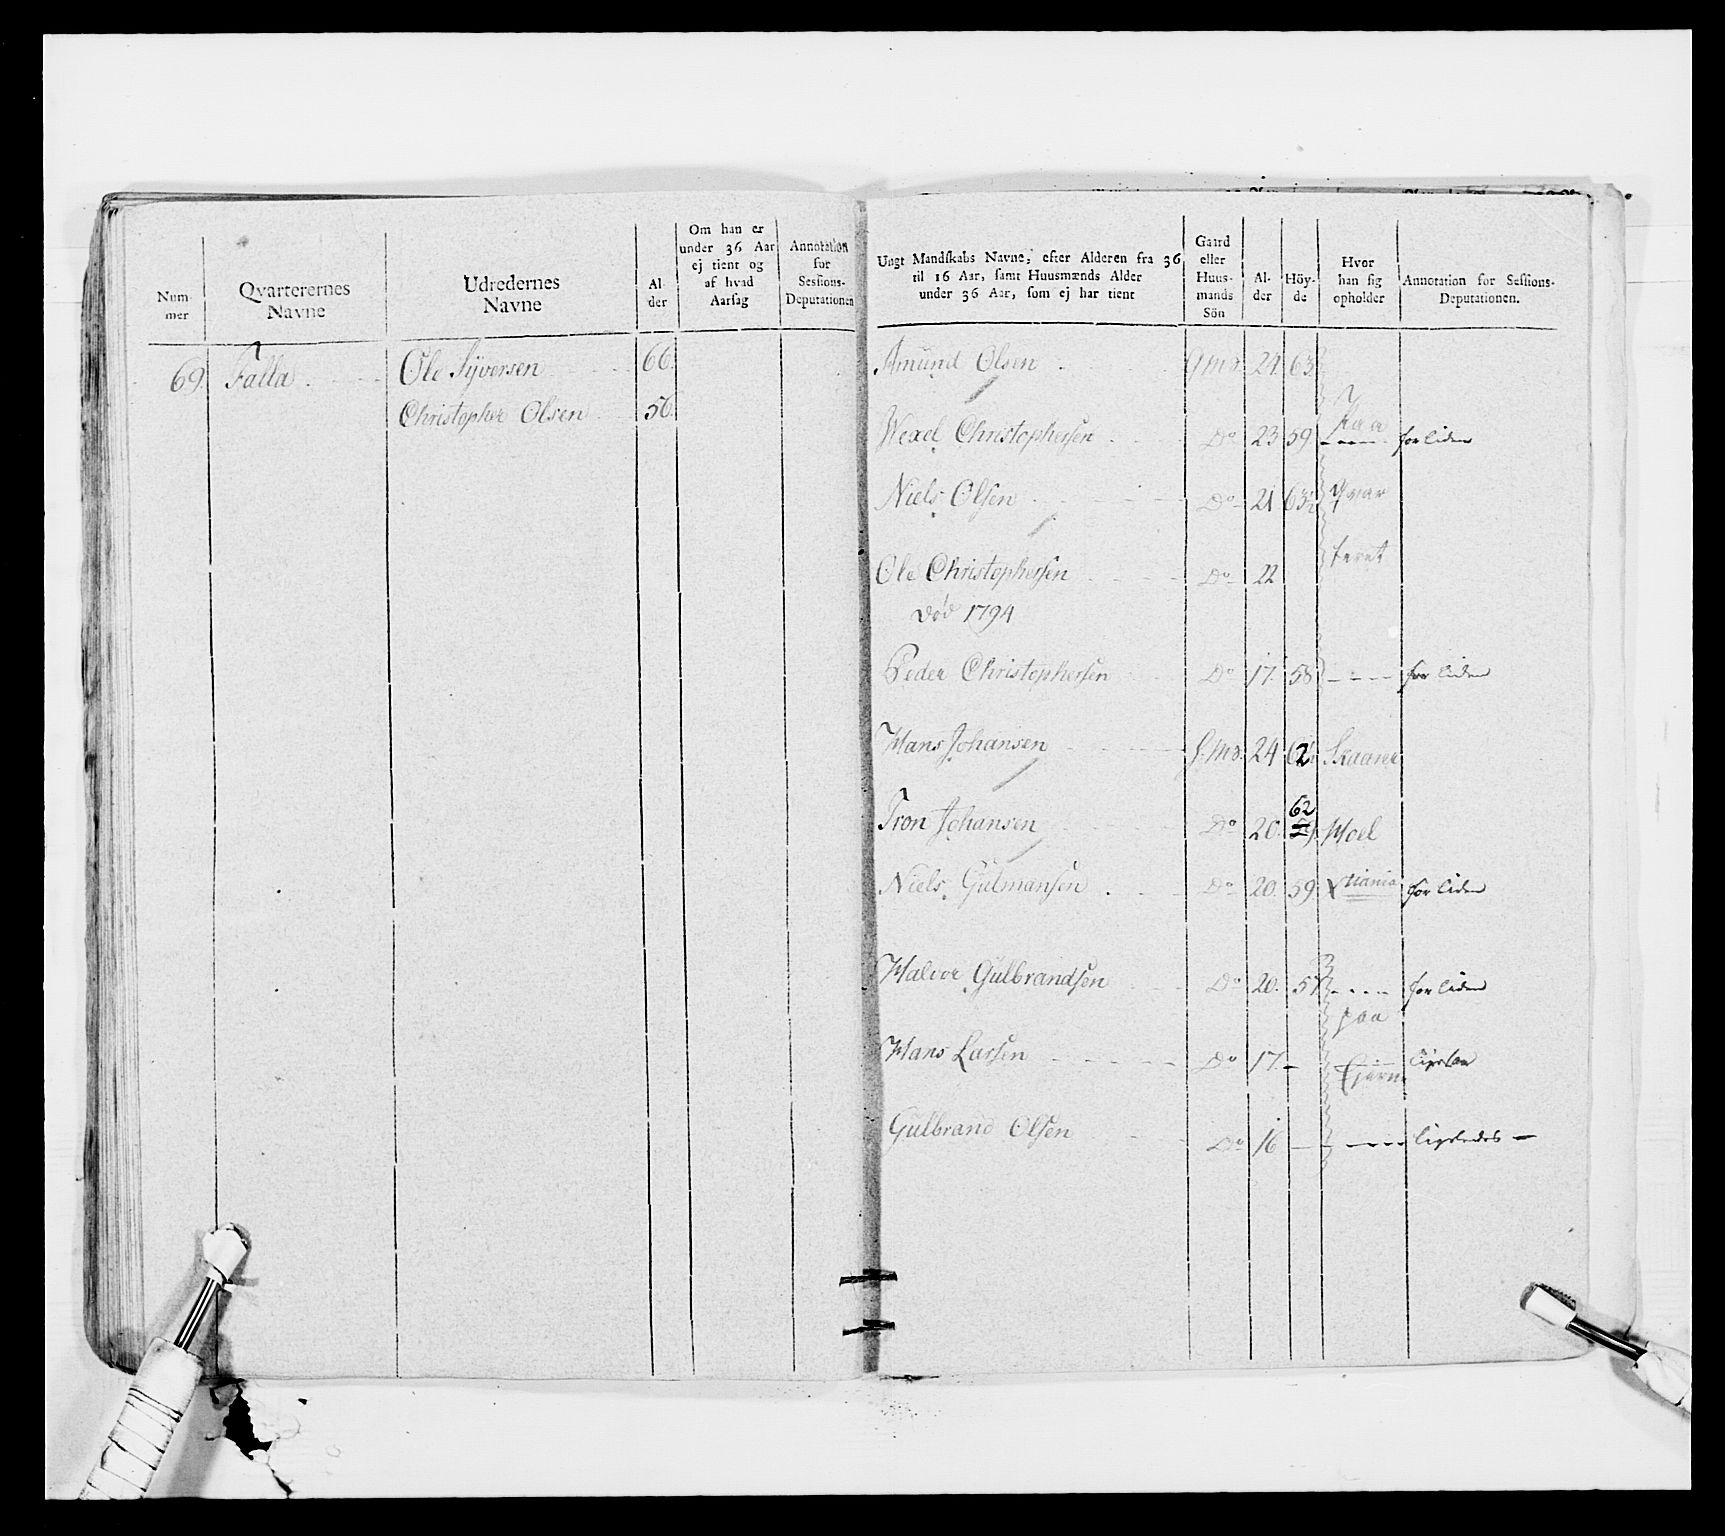 Num-
mer
Qvarterernes
Navne
Udredernes
Navne
Al-
der
Om han er
under 36 Aar
ej tient og
af hvad
Aarsag
Annotation
for
Sessions-
Deputationen
69. Falla Ole Syversen 66.
Christopher Olsen 56.
Ungt Mandskabs Navne, efter Alderen fra 36
til 16 Aar, samt Huusmænds Alder
under 36 Aar, som ej har tient
Gaard
eller
Huus-
mands
Sön
Al-
der
Höy-
de
Hvor
han sig
opholder
Annotation for Sessions-
Deputationen.
Amund Olsen 24. 63
Wexel Christophersen Do 23 59 Paa for liden
Niels Olsen Do 21 63½ qvar
Ole Christophersen Do 22 teret
död 1794
Peder Christophersen Do 17. 58 for liden
Hans Johansen 24 62 Skaane
62
Tron Johansen Do 20. Moel
Niels Gulmansen Do 20. 59. Xtiania for liden
Halvor Gulbrandsen Do 20. 57 for liden
paa
Hans Larsen Do 17. –
Gulbrand Olsen Do 16 — ligeledes –